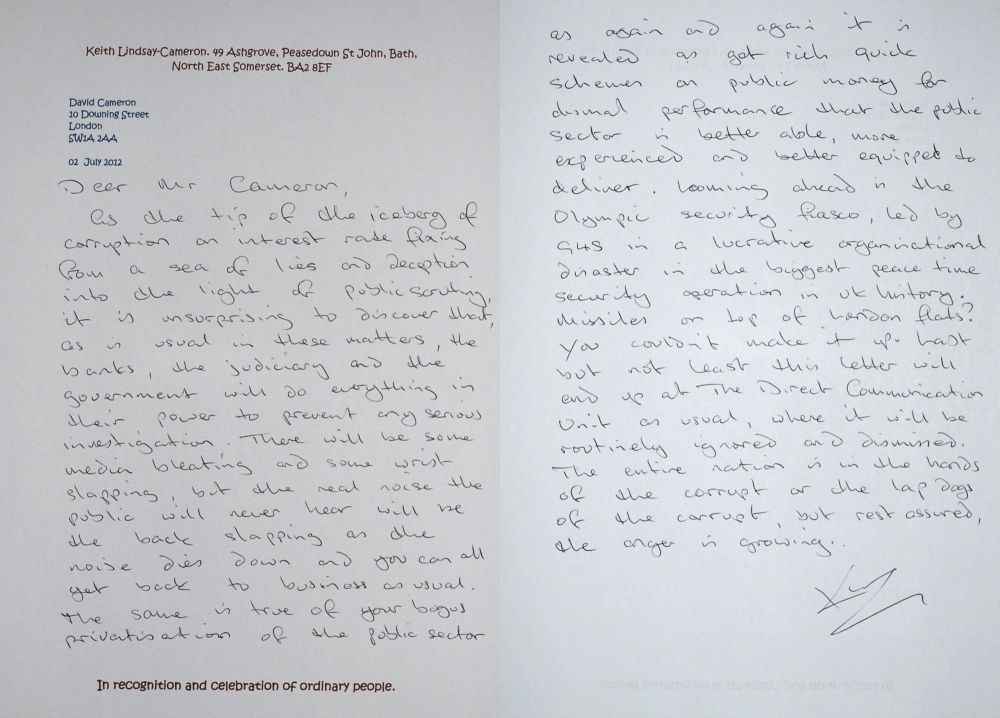 Keith Lindsay-Cameron. 49 Ashgrove, Peasedown St John, Bath,
North East Somerset. BA2 8EF
David Cameron
10 Downing Street
London
SW1A 2AA
02 July 2012
Dear Mr Cameron,
As the tip of the iceberg of
corruption on interest rate fixing
from a sea of lies and deception
into the light of public scrutiny,
it is unsurprising to discover that,
as is usual in these matters, the
banks, the judiciary and the
government will do everything in
their power to prevent any serious
investigation. There will be some
media bleating and some wrist
slapping, but the real noise the
public will never hear will be
the back slapping as the
noise dies down and you can all
get back to business as usual.
The same is true of your bogus
privatisation of the public sector
In recognition and celebration of ordinary people.
as again and again it is
revealed as get rich quick
schemes on public money for
dismal performance that the public
sector is better able, more
experienced and better equipped to
deliver. Looming ahead is the
Olympic security fiasco, led by
G4S in a lucrative organisational
disaster in the biggest peace time
security operation in UK history.
Missiles on top of London flats?
You couldn't make it up. Last
but not least this letter will
end up at The Direct Communication
Unit as usual, where it will be
routinely ignored and dismissed.
The entire nation is in the hands
of the corrupt or the lap dogs
of the corrupt, but rest assured,
the anger is growing..